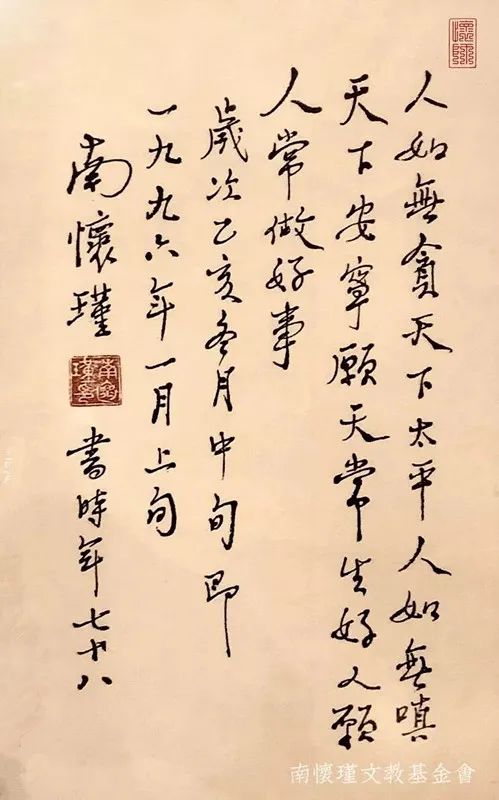 人如無貪天下太平人如無嗔
天下安寧願天常生好人願
人常做好事
歲次乙亥冬月中旬即
一九九六年一月上旬
南懷瑾 書時年七十八
南懷瑾文教基金會